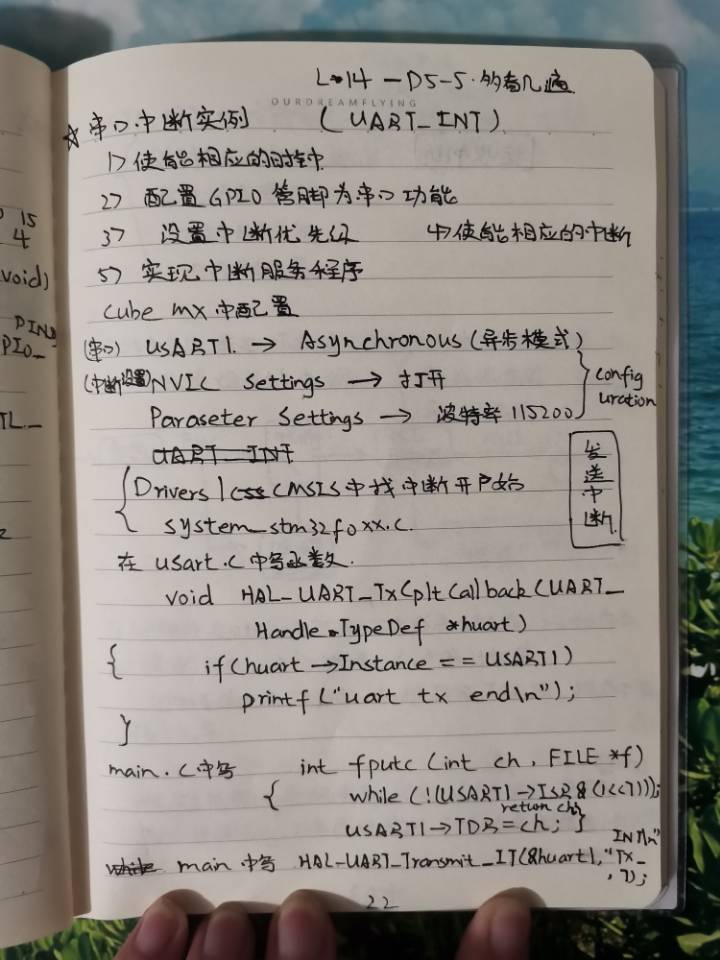 L 14 - D5-5. 多看几遍
OURDREAMFLYING
☆ 串口中断实例 (UART_INT)
1> 使能相应的时钟
2> 配置GPIO管脚为串口功能
3> 设置中断优先级 4> 使能相应的中断
5> 实现中断服务程序
cube mx中配置
(串口) USART1. → Asynchronous (异步模式)
(中断设置) NVIC Settings → 打开
Paraseter Settings → 波特率 115200
Configuration
UART_INT
发送中断
Drivers | CMSIS中找中断开始
system_stm32f0xx.c.
在 usart.c 中写函数.
void HAL_UART_TxCpltCallback(UART_
HandleTypeDef *huart)
{ if(huart→Instance == USART1)
printf("uart tx end\n");
}
main.c中写 int fputc (int ch, FILE *f)
{ while (!(USART1→ISR & (1<<7)));
return ch;
USART1→TDR = ch; }
main 中写 HAL_UART_Transmit_IT(&huart1, "Tx_
INT\n"
,7);
22
15
4
void)
PIN
PIO_
TL._